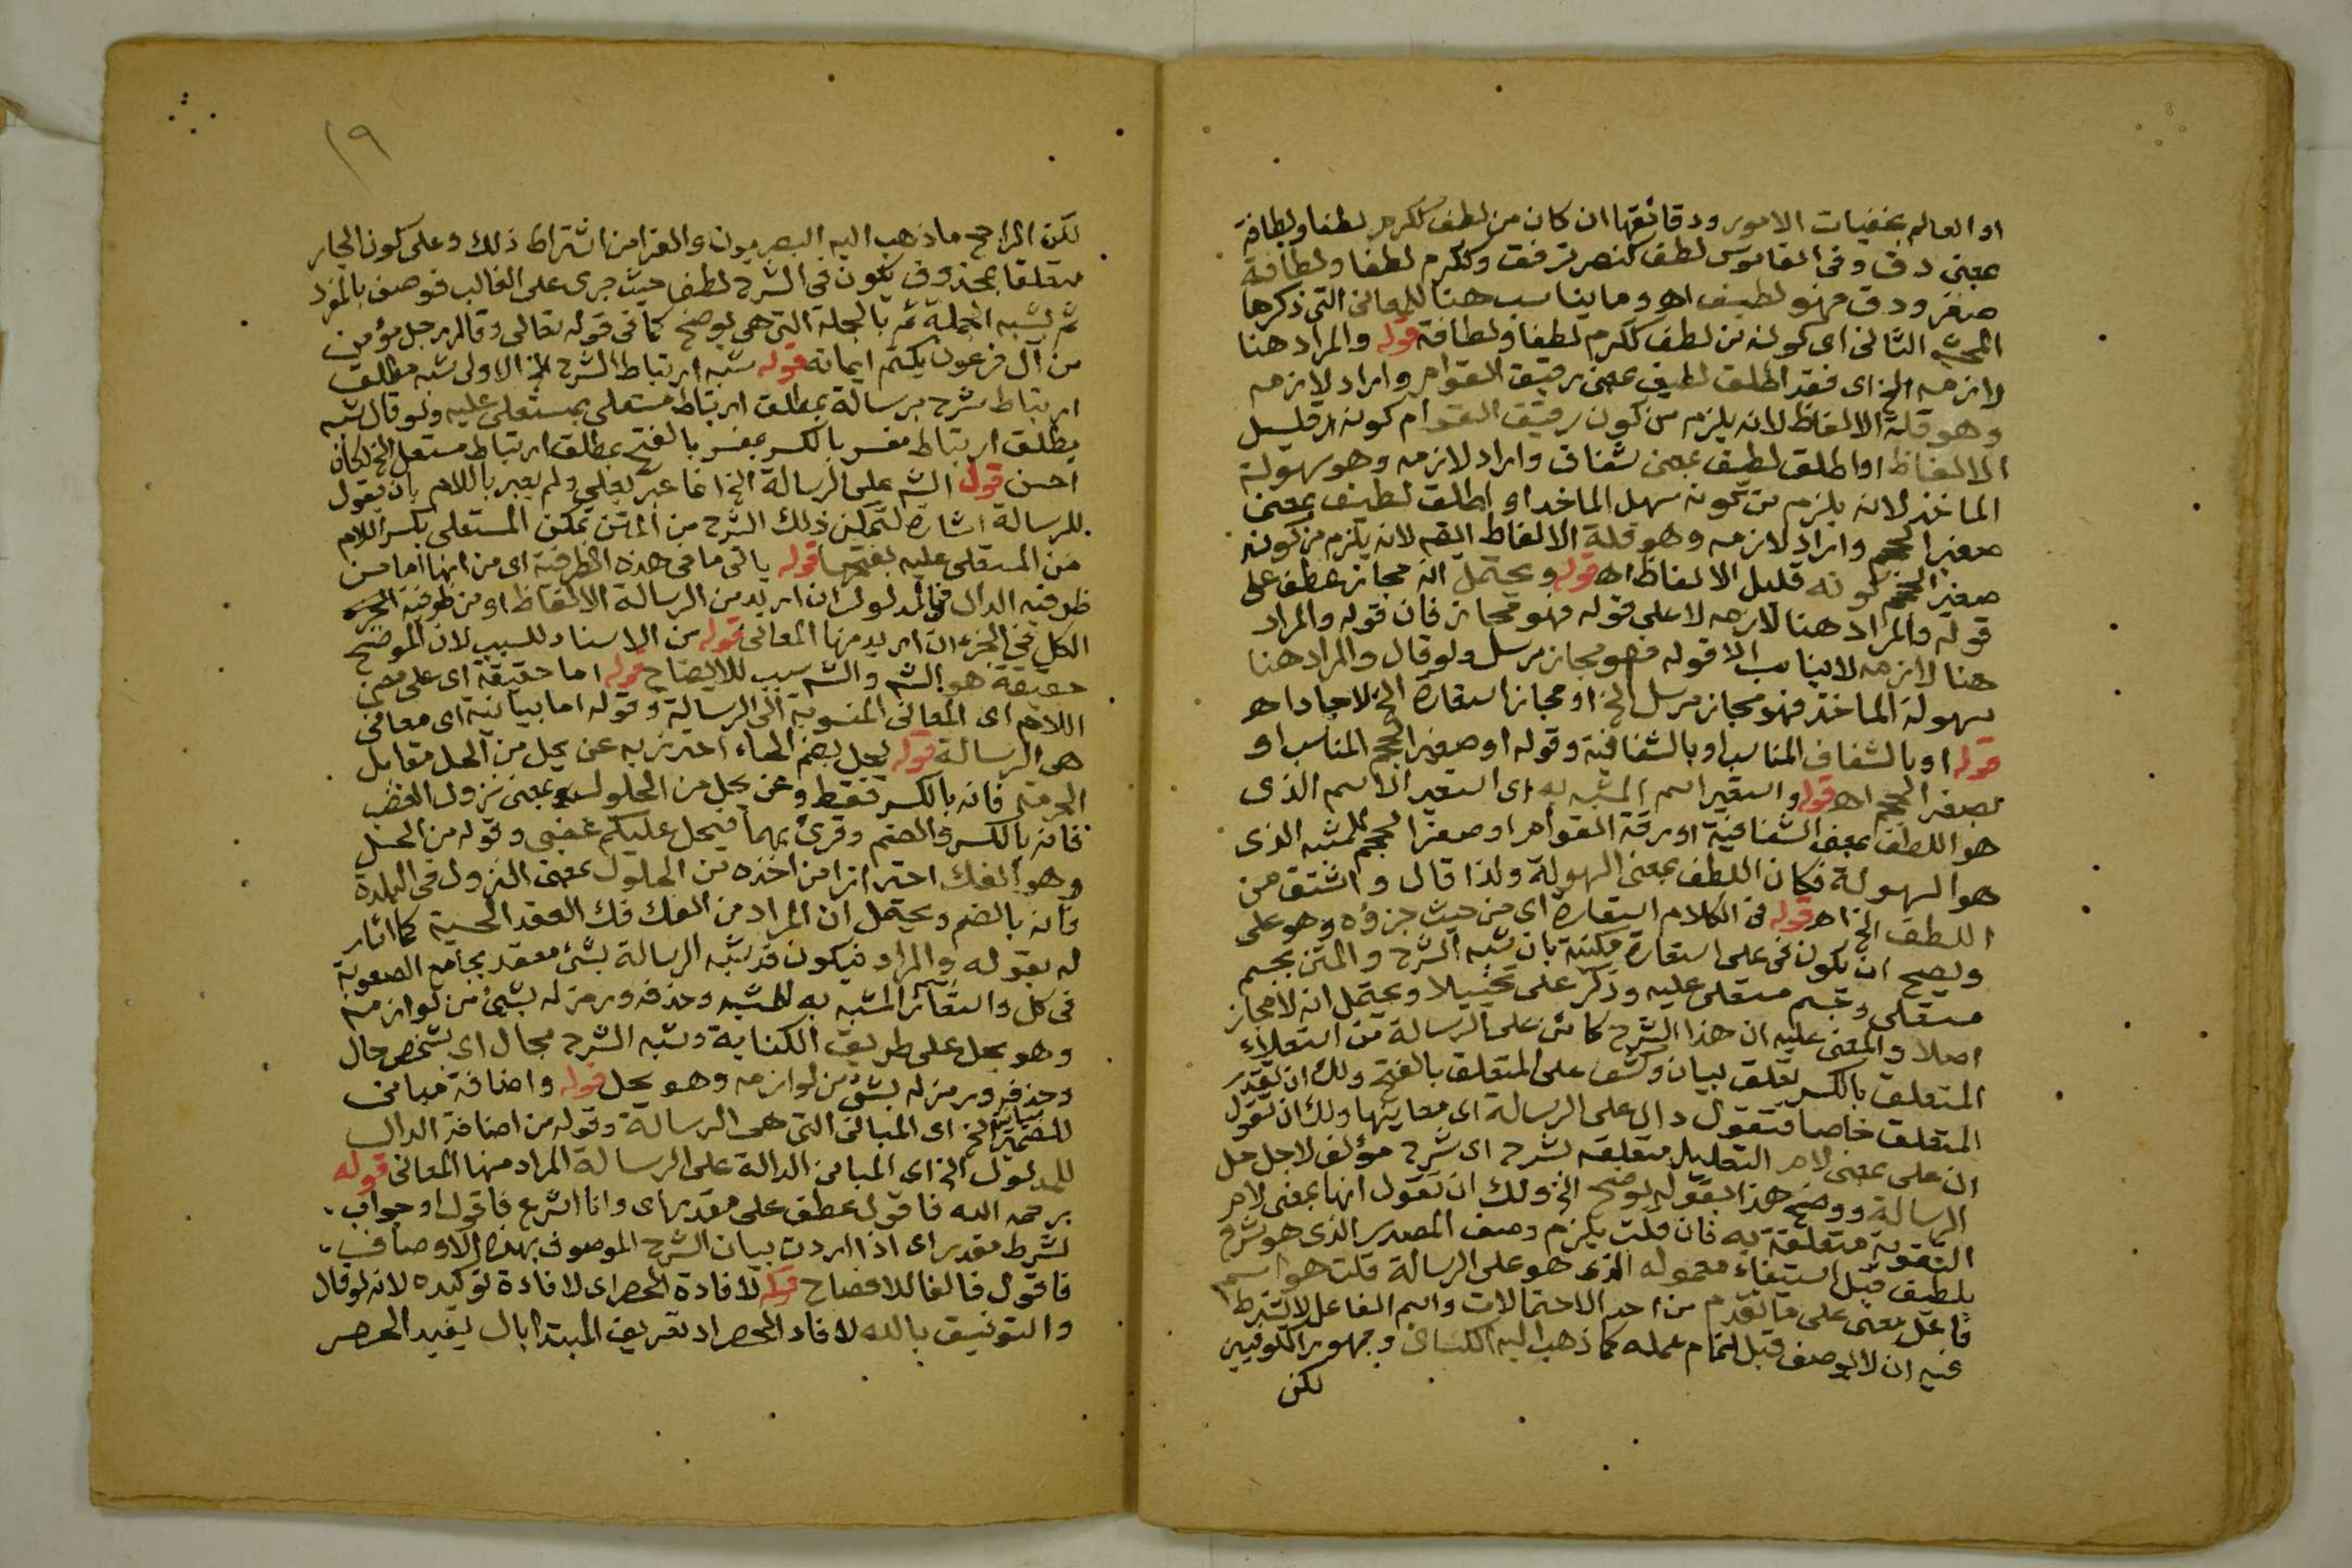 او العالم بخفيات الامور ودقائقها ان كان من لطف ككرم لطفا ولطافة
بمعنى دق وفى القاموس لطف كنصر رفق وككرم لطفا ولطافة
صغر ودق فهو لطيف اهـ وما يناسب هنا للمعانى التى ذكرها
المحشى الثانى اى كونه من لطف ككرم لطفا ولطافة قوله والمراد هنا
لازمه الخ اى فقد اطلق لطيف بمعنى رقيق القوام واراد لازمه
وهو قلة الالفاظ لانه يلزم من كون رقيق القوام كونه قليل
الالفاظ او اطلق لطيف بمعنى شفاف واراد لازمه وهو سهولة
الماخذ لانه يلزم من كونه سهل الماخذ او اطلق لطيف بمعنى
صغير الحجم واراد لازمه وهو قلة الالفاظ ايضه لانه يلزم من كونه
صغير الحجم كونه قليل الالفاظ اهـ قوله ويحتمل انه مجاز عطف على
قوله والمراد هنا لازمه لا على قوله فهو مجاز فان قوله والمراد
هنا لازمه لا يناسب الا قوله فهو مجاز مرسل ولو قال والمراد هنا
سهولة الماخذ فهو مجاز مرسل الخ او مجاز استعارة الخ لاجاد اهـ
قوله او بالشفاف المناسب او بالشفافية وقوله او صغير الحجم المناسب او
بصغر الحجم اهـ قوله واستعير اسم المشبه به اى استعير الاسم الذى
هو اللطف بمعنى الشفافية او رقة القوام او صغر الحجم للمشبه الذى
هو السهولة فكان اللطف بمعنى السهولة ولذا قال واشتق من
اللطف الخ اهـ قوله فى الكلام استعارة اى من حيث جزؤه وهو على
ويصح ان يكون فى على استعارة مكنية بان شبه الشرح والمتن بجسم
مستعلى وجسم مستعلى عليه وذكر على تخييلا ويحتمل انه لا مجاز
اصلا والمعنى عليه ان هذا الشرح كائن على الرسالة من استعلاء
المتعلق بالكسر تعلق بيان وكشف على المتعلق بالفتح ولك ان تقدر
المتعلق خاصا فتقول دال على الرسالة اى معانيها ولك ان تقول
ان على بمعنى لام التعليل متعلقه بشرح اى شرح مؤلف لاجل حل
الرسالة ووضح هذا بقوله يوضح الخ ولك ان تقول انها بمعنى لام
التقوية متعلقة به فان قلت يلزم وصف المصدر الذى هو شرح
بلطيف قبل استيفاء معموله الذى هو على الرسالة قلت هو اسم
فاعل معنى على ما تقدم من احد الاحتمالات واسم الفاعل لا يشترط
فيه ان لا يوصف قبل تمام عمله كما ذهب اليه الكسائى وجمهور الكوفيين
لكن
١٩
لكن الراجح ما ذهب اليه البصريون والفرا من اشتراط ذلك وعلى كون الجار
متعلقا بمحذوف يكون فى الشرح لطف حيث جرى على الغالب فوصف بالمفرد
ثم بشبه الجملة ثم بالجملة التى هى يوضح كما فى قوله تعالى وقال رجل مؤمن
من آل فرعون يكتم ايمانه قوله شبه ارتباط الشرح الخ الاولى شبه مطلق
ارتباط شرح برسالة بمطلق ارتباط مستعلى بمستعلى عليه ولو قال شبه
مطلق ارتباط مفسر بالكسر بمفسر بالفتح بمطلق ارتباط مستعلى الخ لكان
احسن قوله الشه على الرسالة الخ انما عبر بعلى ولم يعبر باللام بان يقول
للرسالة اشارة لتمكن ذلك الشرح من المتن تمكن المستعلى بكسر اللام
من المستعلى عليه بفتحها قوله ياتى ما فى هذه الظرفية اى من انها اما من
ظرفيه الدال فى المدلول ان اريد من الرسالة الالفاظ او من ظرفية الجزء
الكل فى الجزء ان اريد منها المعانى قوله من الاسناد للسبب لان الموضح
حقيقة هو الشه والشه سبب للايضاح قوله اما حقيقة اى على معنى
اللام اى المعانى المنسوبة الى الرسالة وقوله اما بيانية اى معانى
هى الرسالة قوله يحل بضم الحاء احترز به عن يحل من الحل مقابل
الحرمة فانه بالكسر فقط وعن يحل من الحلول بمعنى نزول الغضب
فانه بالكسر والضم وقرئ بهما فيحل عليكم غضبى وقوله من الحل
وهو الفك احترازا من اخذه من الحلول بمعنى النزول فى البلدة
فانه بالضم ويحتمل ان المراد من الفك فك العقد الحسية كما اشار
له بقوله والمراد فيكون قد شبه الرسالة بشئ معقد بجامع الصعوبة
فى كل واستعار المشبه به للمشبه وحذفه ورمز له بشئ من لوازمه
وهو يحل على طريق الكناية وشبه الشرح بحال اى بشخص حال
وحذفه ورمز له بشئ من لوازمه وهو يحل قوله واضافة مبانى
للضمير بيانية الخ اى المبانى التى هى الرسالة وقوله من اضافة الدال
للمدلول الخ اى المبانى الدالة على الرسالة المراد منها المعانى قوله
رحمه الله فاقول عطف على مقدر اى وانا اشرع فاقول او جواب
لشرط مقدر اى اذا اردت بيان الشرح الموصوف بهذه الاوصاف
فاقول فالفا للافصاح قوله لافادة الحصر اى لافادة توكيده لانه لو قال
والتوفيق بالله لافاد الحصر اذ تعريف المبتدا بال يفيد الحصر